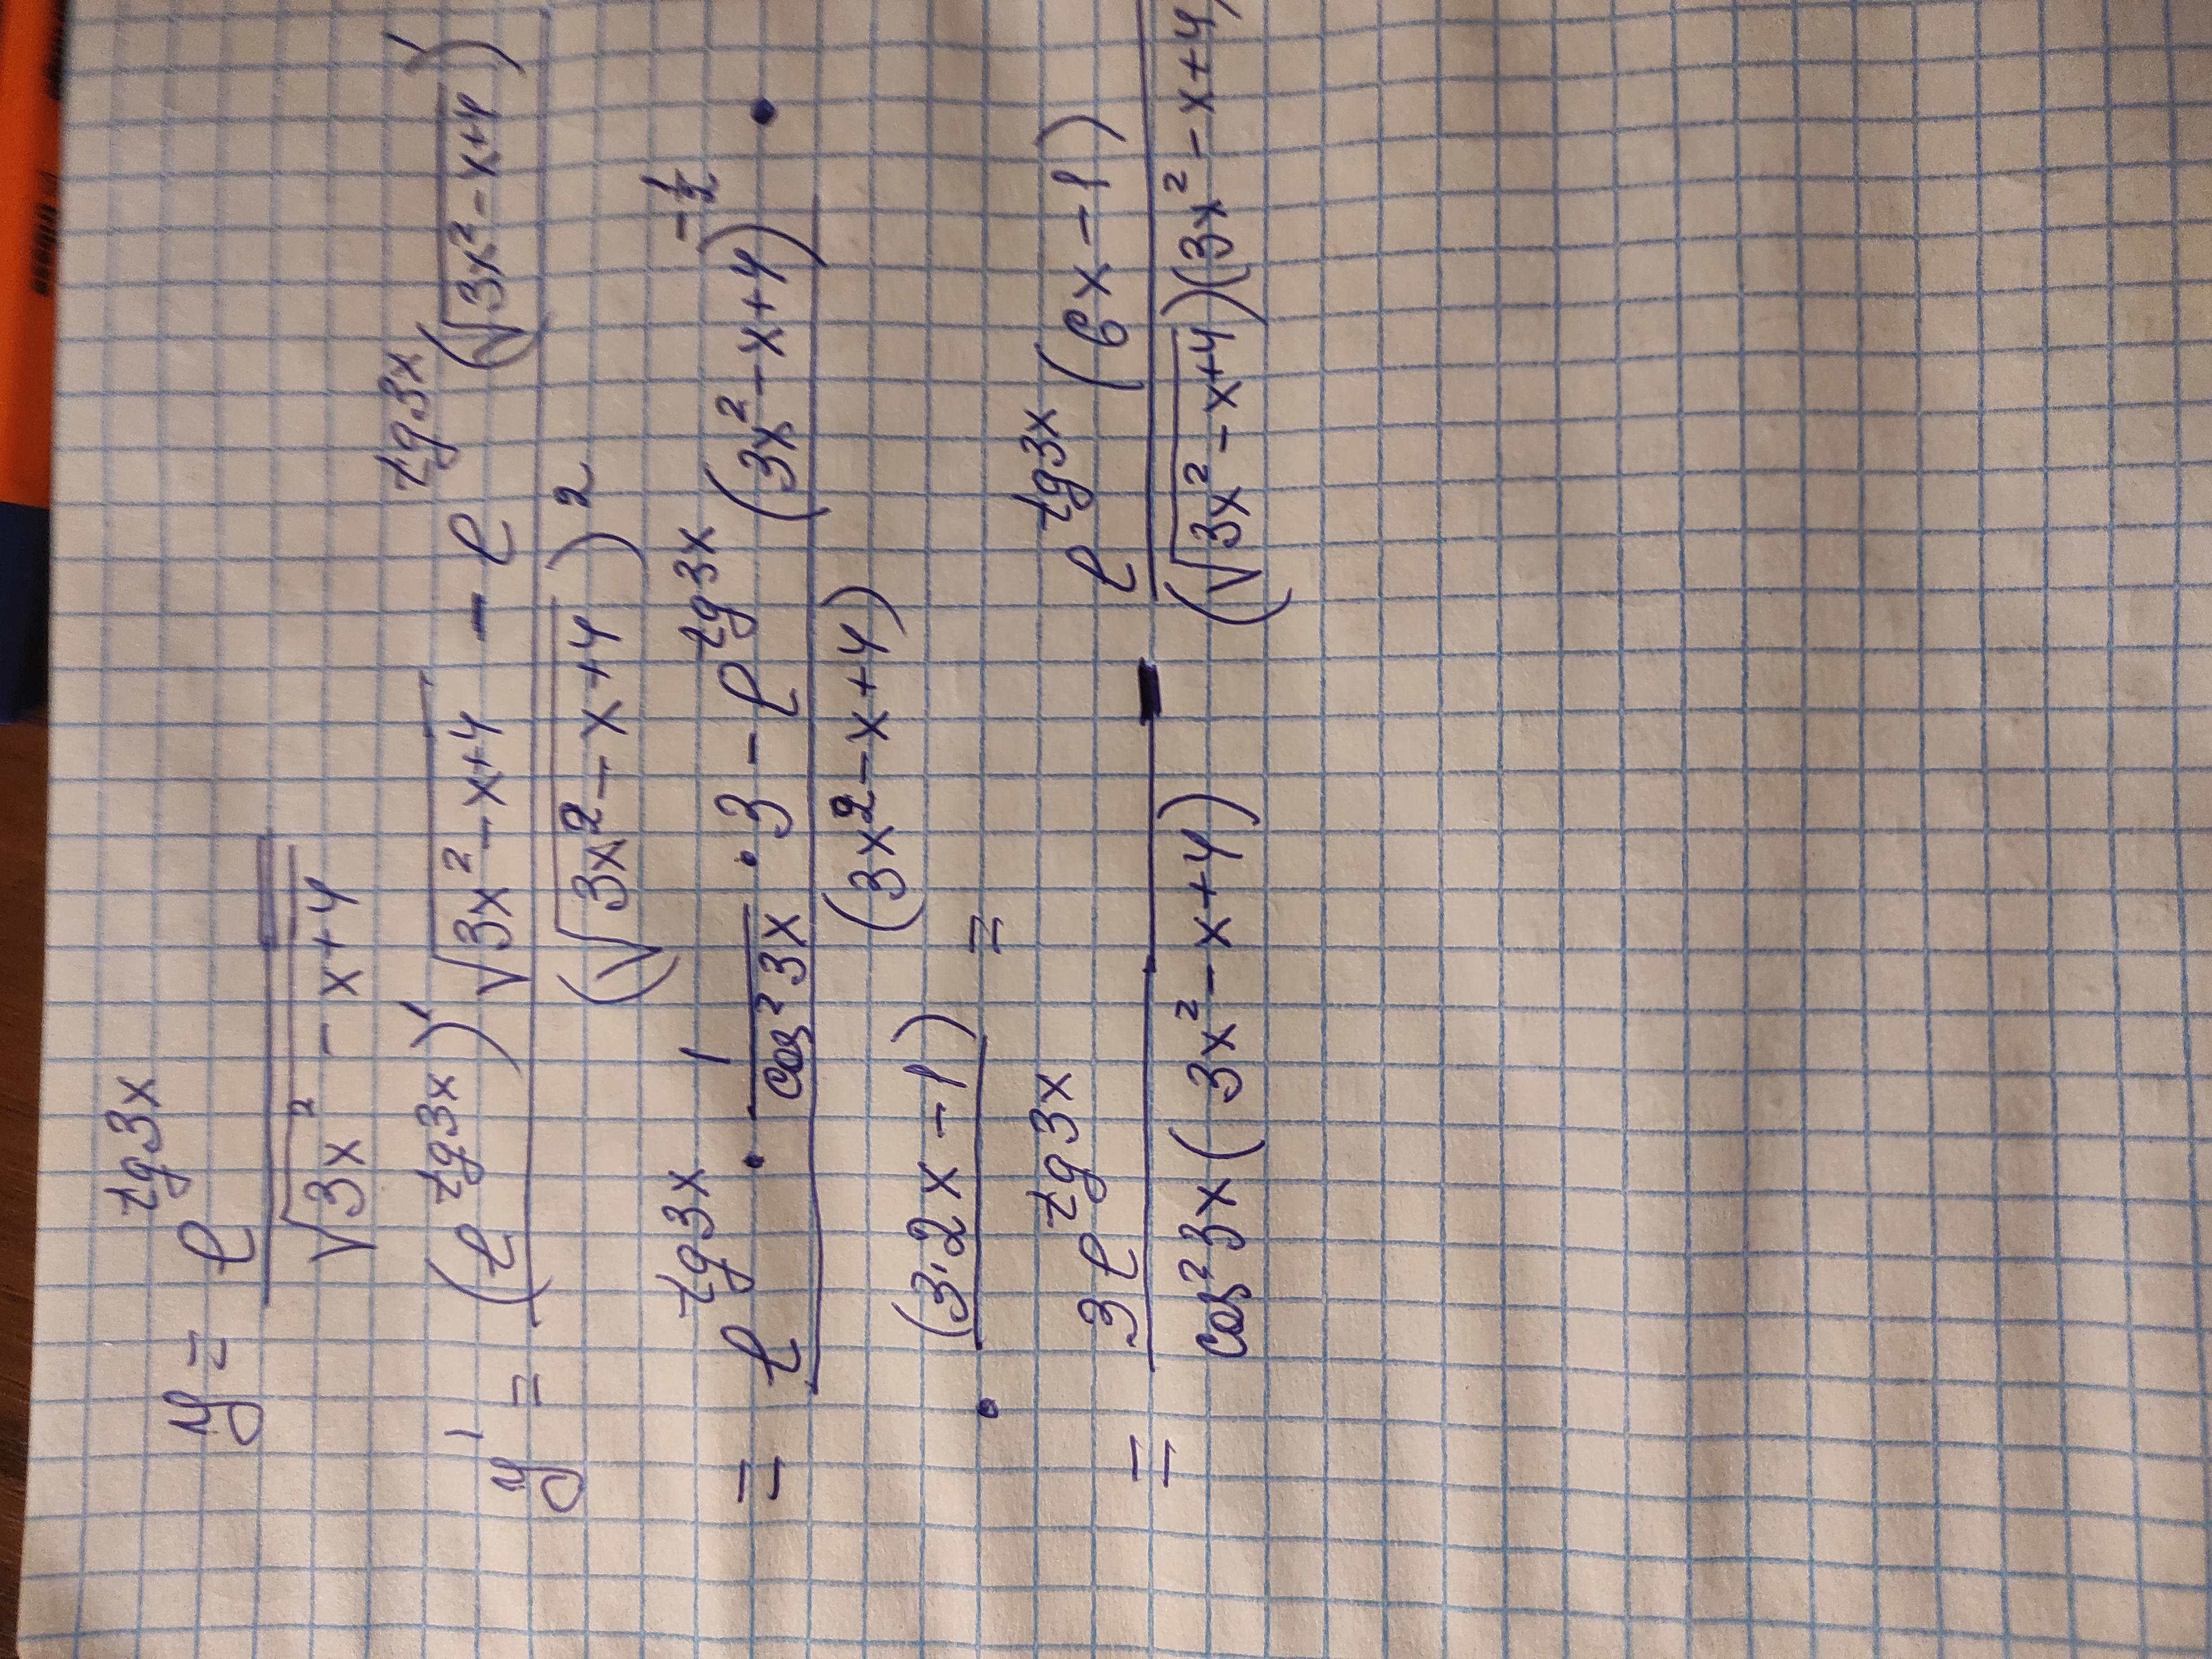 y = e^{tg3x} / √(3x² - x + 4)
y' = ((e^{tg3x})' √(3x² - x + 4) - e^{tg3x} (√(3x² - x + 4))') / (√(3x² - x + 4))²
= (e^{tg3x} · 1/cos²3x · 3 - e^{tg3x} (3x² - x + 4)^{-1/2} ·) / (3x² - x + 4)
· (3·2x - 1) =
= 3e^{tg3x} / cos²3x (3x² - x + 4) - e^{tg3x} (6x - 1) / (√(3x² - x + 4))(3x² - x + 4)